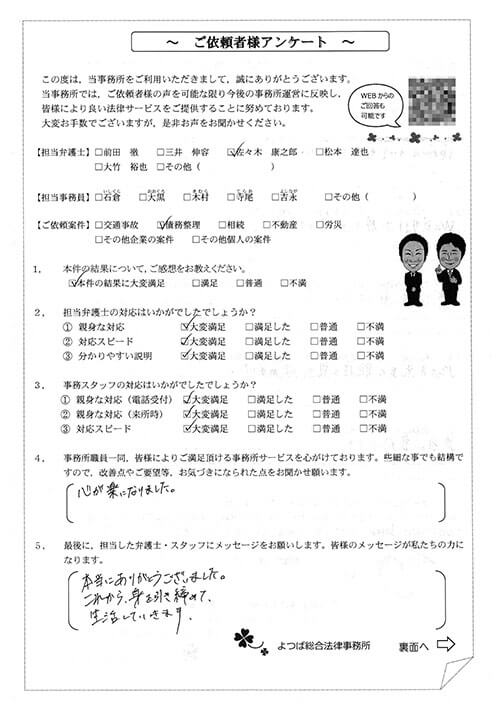 ～ ご依頼者様アンケート ～
この度は，当事務所をご利用いただきまして，誠にありがとうございます。
当事務所では，ご依頼者様の声を可能な限り今後の事務所運営に反映し，
皆様により良い法律サービスをご提供することに努めております。
大変お手数でございますが，是非お声をお聞かせください。
WEBからの
ご回答も
可能です
【担当弁護士】 □前田 徹 □三井 伸容 ☑佐々木 康之郎 □松本 達也
□大竹 裕也 □その他（ ）
【担当事務員】 □石倉 □大黒 □木村 □寺尾 □吉永 □その他（ ）
【ご依頼案件】 □交通事故 ☑債務整理 □相続 □不動産 □労災
□その他企業の案件 □その他個人の案件
1． 本件の結果について，ご感想をお教えください。
☑本件の結果に大変満足 □満足 □普通 □不満
2． 担当弁護士の対応はいかがでしたでしょうか？
① 親身な対応 ☑大変満足 □満足した □普通 □不満
② 対応スピード ☑大変満足 □満足した □普通 □不満
③ 分かりやすい説明 ☑大変満足 □満足した □普通 □不満
3． 事務スタッフの対応はいかがでしたでしょうか？
① 親身な対応（電話受付） ☑大変満足 □満足した □普通 □不満
② 親身な対応（来所時） ☑大変満足 □満足した □普通 □不満
③ 対応スピード ☑大変満足 □満足した □普通 □不満
4． 事務所職員一同，皆様によりご満足頂ける事務所サービスを心がけております。些細な事でも結構で
すので，改善点やご要望等，お気づきになられた点をお聞かせ願います。
心が楽になりました。
5． 最後に，担当した弁護士・スタッフにメッセージをお願いします。皆様のメッセージが私たちの力に
なります。
本当にありがとうございました。
これから、身を引き締めて、
生活していきます。
よつば総合法律事務所
裏面へ ⇨